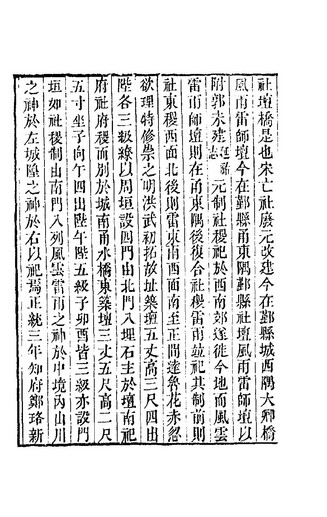 社壇橋是也宋亡社廢元改建今在鄞縣城西隅大卿橋
風雨雷師壇今在鄞縣東隅鄞縣社壇風雨雷師壇以
附郭未建延祐志元制社稷祀於西南郊遂徙今地而風雲
雷雨師壇則在甬東隅後復合社稷雷雨並祀其制前則
社東稷西面北後則雷東南西面南至正間達魯花赤忽
欲理特修崇之明洪武初拓故址築壇五丈高三尺四出
陛各三級繚以周垣設四門由北門入埋石主於壇南祀
府社府稷而別於城南甬水橋東築壇三丈五尺高二尺
五寸坐子向午四出陛午陛五級子卯酉皆三級亦設門
垣如社稷制由南門入列風雲雷雨之神於中境內山川
之神於左城隍之神於右以祀焉正統三年知府鄭珞新